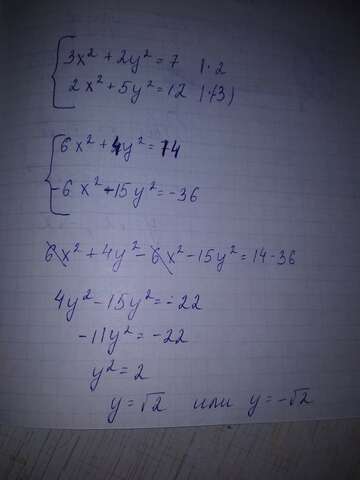 {3x² + 2y² = 7 |·2
{2x² + 5y² = 12 |·(-3)
{6x² + 4y² = 14
{-6x² - 15y² = -36
6x² + 4y² - 6x² - 15y² = 14 - 36
4y² - 15y² = -22
-11y² = -22
y² = 2
y = √2 или y = -√2